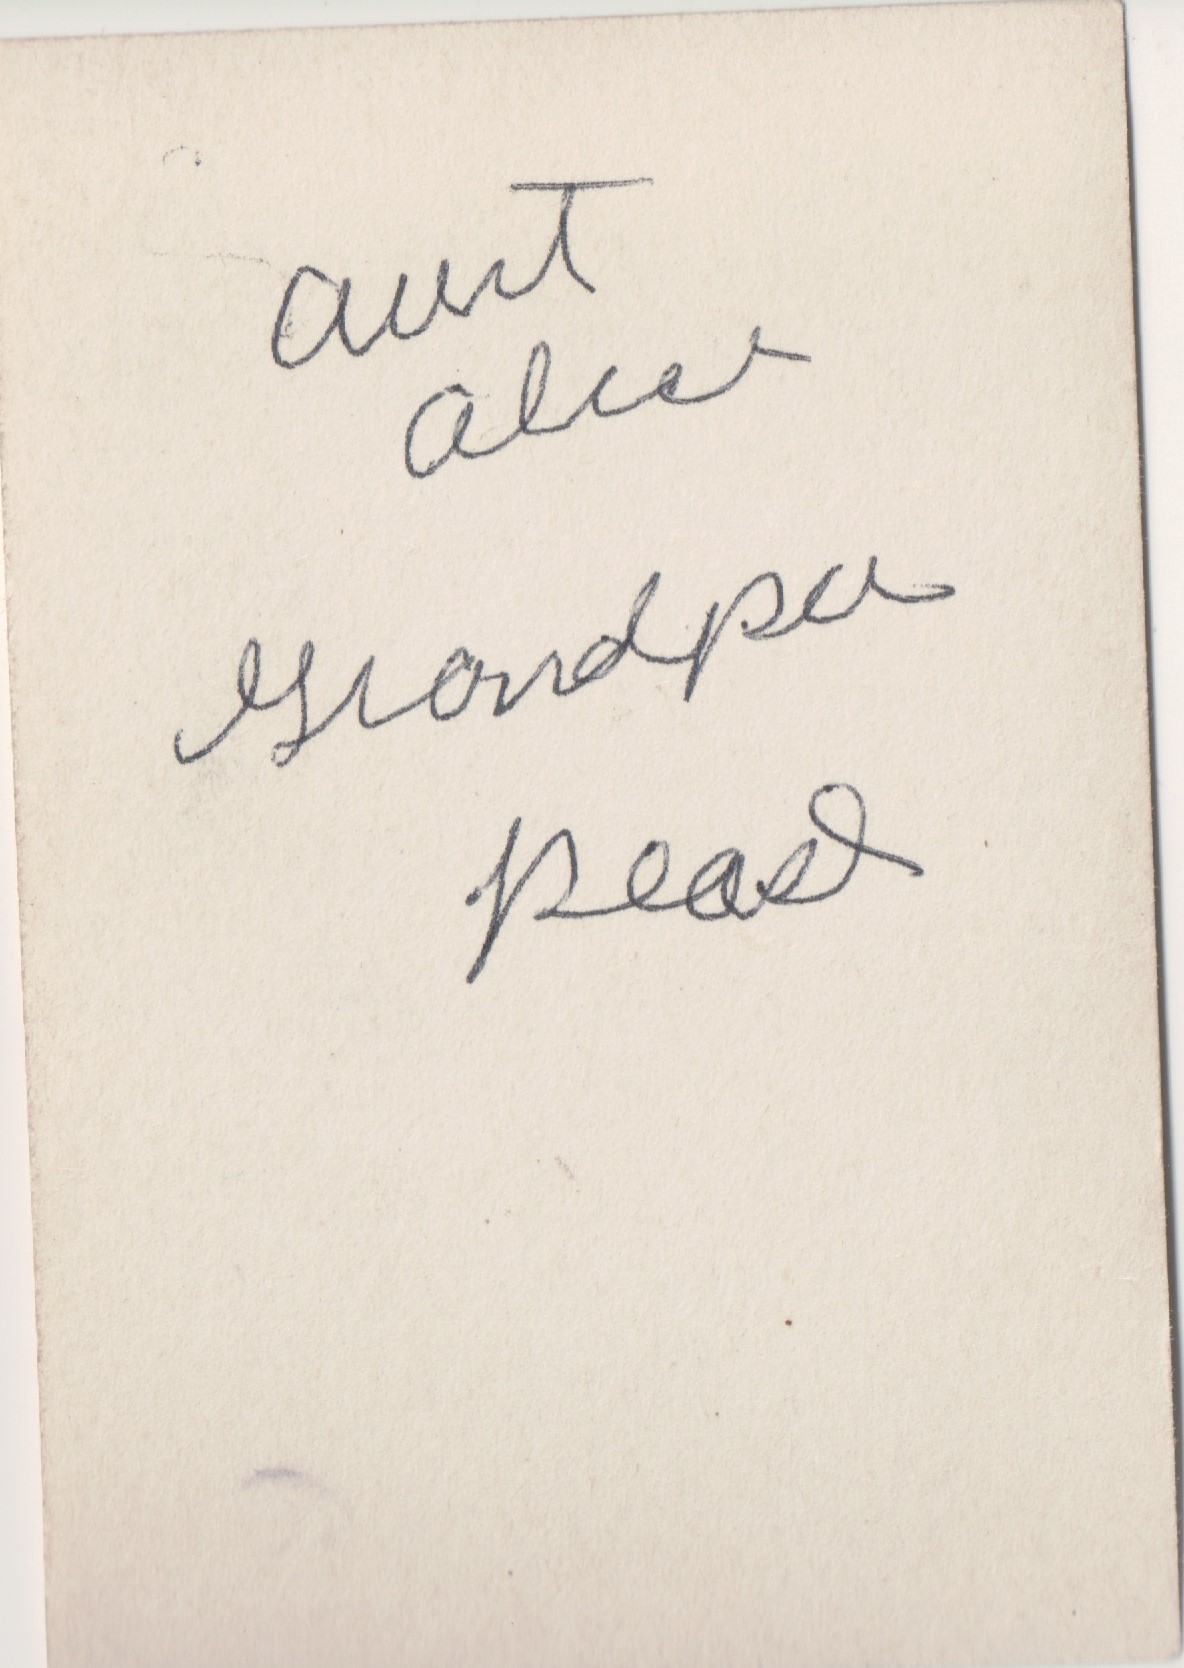 aunt
alice
Grandpa
Pease